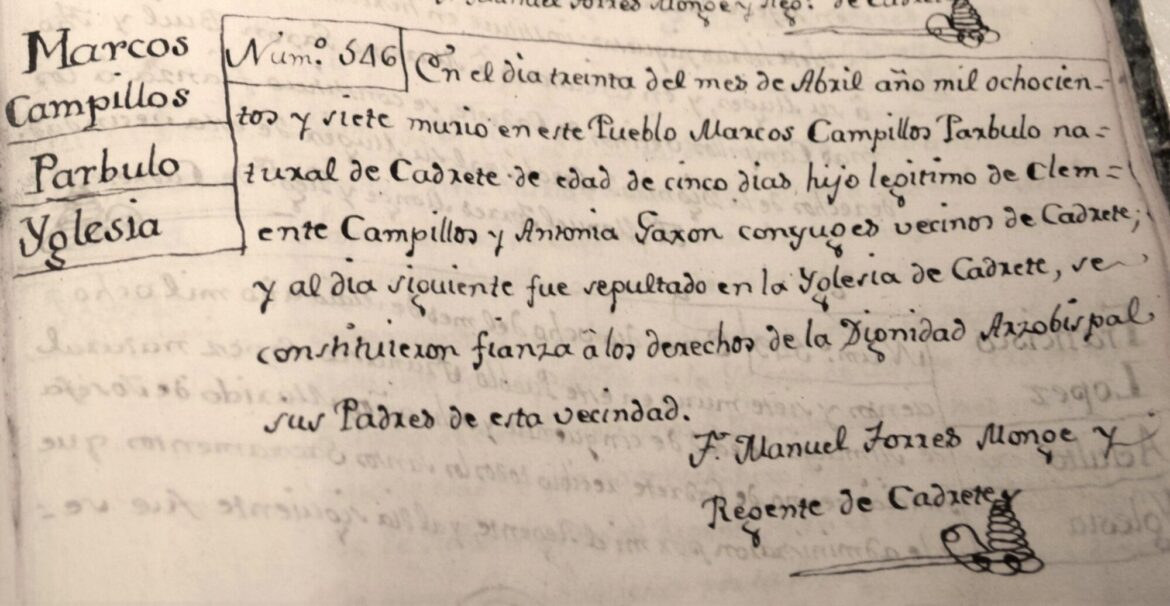 Marcos
Campillos
Parbulo
Yglesia
Num.º 546
En el dia treinta del mes de Abril año mil ochocien-
tos y siete murio en este Pueblo Marcos Campillos Parbulo na=
tural de Cadrete de edad de cinco dias, hijo legitimo de Clem=
ente Campillos y Antonia Gaxon conyuges vecinos de Cadrete;
y al dia siguiente fue sepultado en la Yglesia de Cadrete, se
constituieron fianza â los derechos de la Dignidad Arzobispal
sus Padres de esta vecindad.
F.r Manuel Torres Monge y
Regente de Cadrete